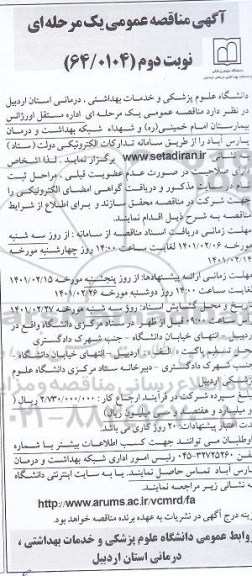 آگهی مناقصه عمومی یک مرحله ای
نوبت دوم (۶۴/۰۱۰۴)
دانشگاه علوم پزشکی و خدمات بهداشتی ، درمانی استان اردبیل
در نظر دارد مناقصه عمومی یک مرحله ای اداره مستقل اورژانس
بیمارستان امام خمینی(ره) و شهداء شبکه بهداشت و درمان
پارس آباد را از طریق سامانه تدارکات الکترونیکی دولت (ستاد)
به نشانی www.setadiran.ir برگزار نماید . لذا اشخاص
صلاحیت در صورت عدم عضویت قبلی ، مراحل ثبت
سایت مذکور و دریافت گواهی امضای الکترونیکی را
جهت شرکت در مناقصه محقق سازند و برای اطلاع از شرایط
مناقصه به شرح ذیل اقدام نمایند.
مهلت زمانی دریافت اسناد مناقصه از سامانه : از روز سه شنبه
مورخه ۱۴۰۱/۰۲/۰۶ لغایت ساعت ۱۴:۰۰ روز چهارشنبه مورخه
۱۴۰۱/۰۲/۱۴
مهلت زمانی ارائه پیشنهادها: از روز پنجشنبه مورخه ۱۴۰۱/۰۲/۱۵
لغایت ساعت ۱۴:۰۰ روز دوشنبه مورخه ۱۴۰۱/۰۲/۲۶
تاریخ و محل گشایش اسناد: روز سه شنبه مورخه ۱۴۰۱/۰۲/۲۷
ساعت ۰۹:۰۰ قبل از ظهر در ستاد مرکزی دانشگاه واقع در
اردبیل - انتهای خیابان دانشگاه - جنب شهرک دادگستری
تسلیم پاکت الف : اردبیل - انتهای خیابان دانشگاه -
جنب شهرک دادگستری - دبیرخانه ستاد مرکزی دانشگاه علوم
پزشکی اردبیل
مبلغ سپرده شرکت در فرآیند ارجاع کار : ۲/۷۳۰/۰۰۰/۰۰۰ ریال (
دو میلیارد و هفتصد و سی میلیون ریال)
مدت اعتبار پیشنهادات: ۲۰ روز کاری می باشد.
داوطلبان می توانند جهت کسب اطلاعات بیشتر با شماره
تلفن ۳۲۷۲۵۲۶۰-۰۴۵ رئیس امور اداری شبکه بهداشت و درمان
پارس آباد تماس حاصل نمایند. یا به سایت اینترنتی دانشگاه
به نشانی زیر مراجعه نمایند.
http://www.arums.ac.ir/vcmrd/fa
هزینه درج آگهی در نشریات به عهده برنده مناقصه خواهد بود.
روابط عمومی دانشگاه علوم پزشکی و خدمات بهداشتی ،
درمانی استان اردبیل